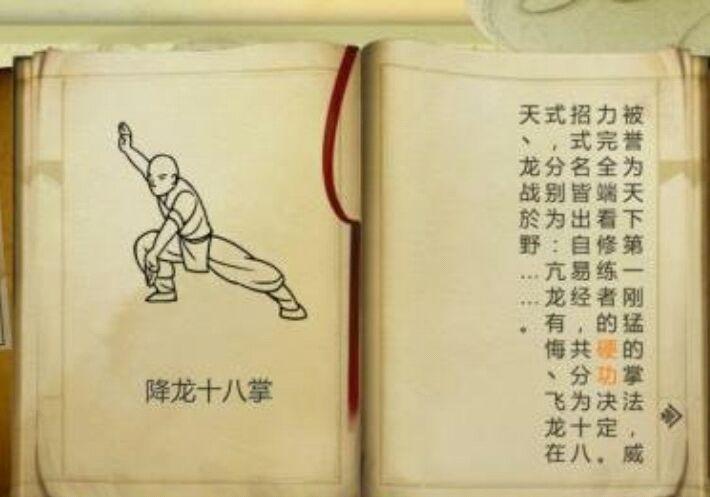 降龙十八掌
被誉为天下第一刚猛的掌法，威
力完全端看修练者的硬功决定。
招式名皆出自易经，共分为十八
式，分别为：亢龙有悔、飞龙在
天、龙战於野……。